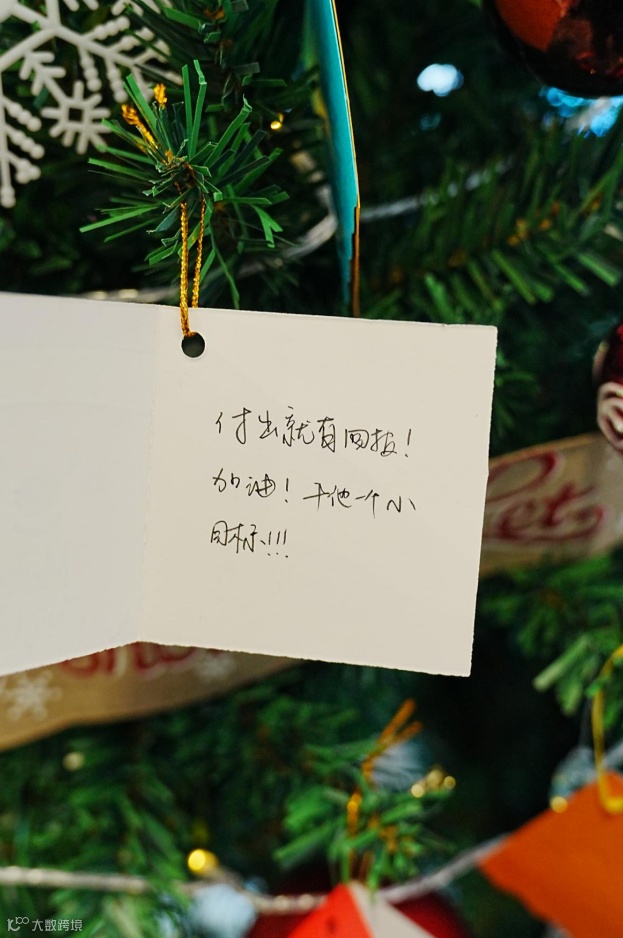 付出就有回报!
加油!干他一个小
目标!!!
Let
大数跨境